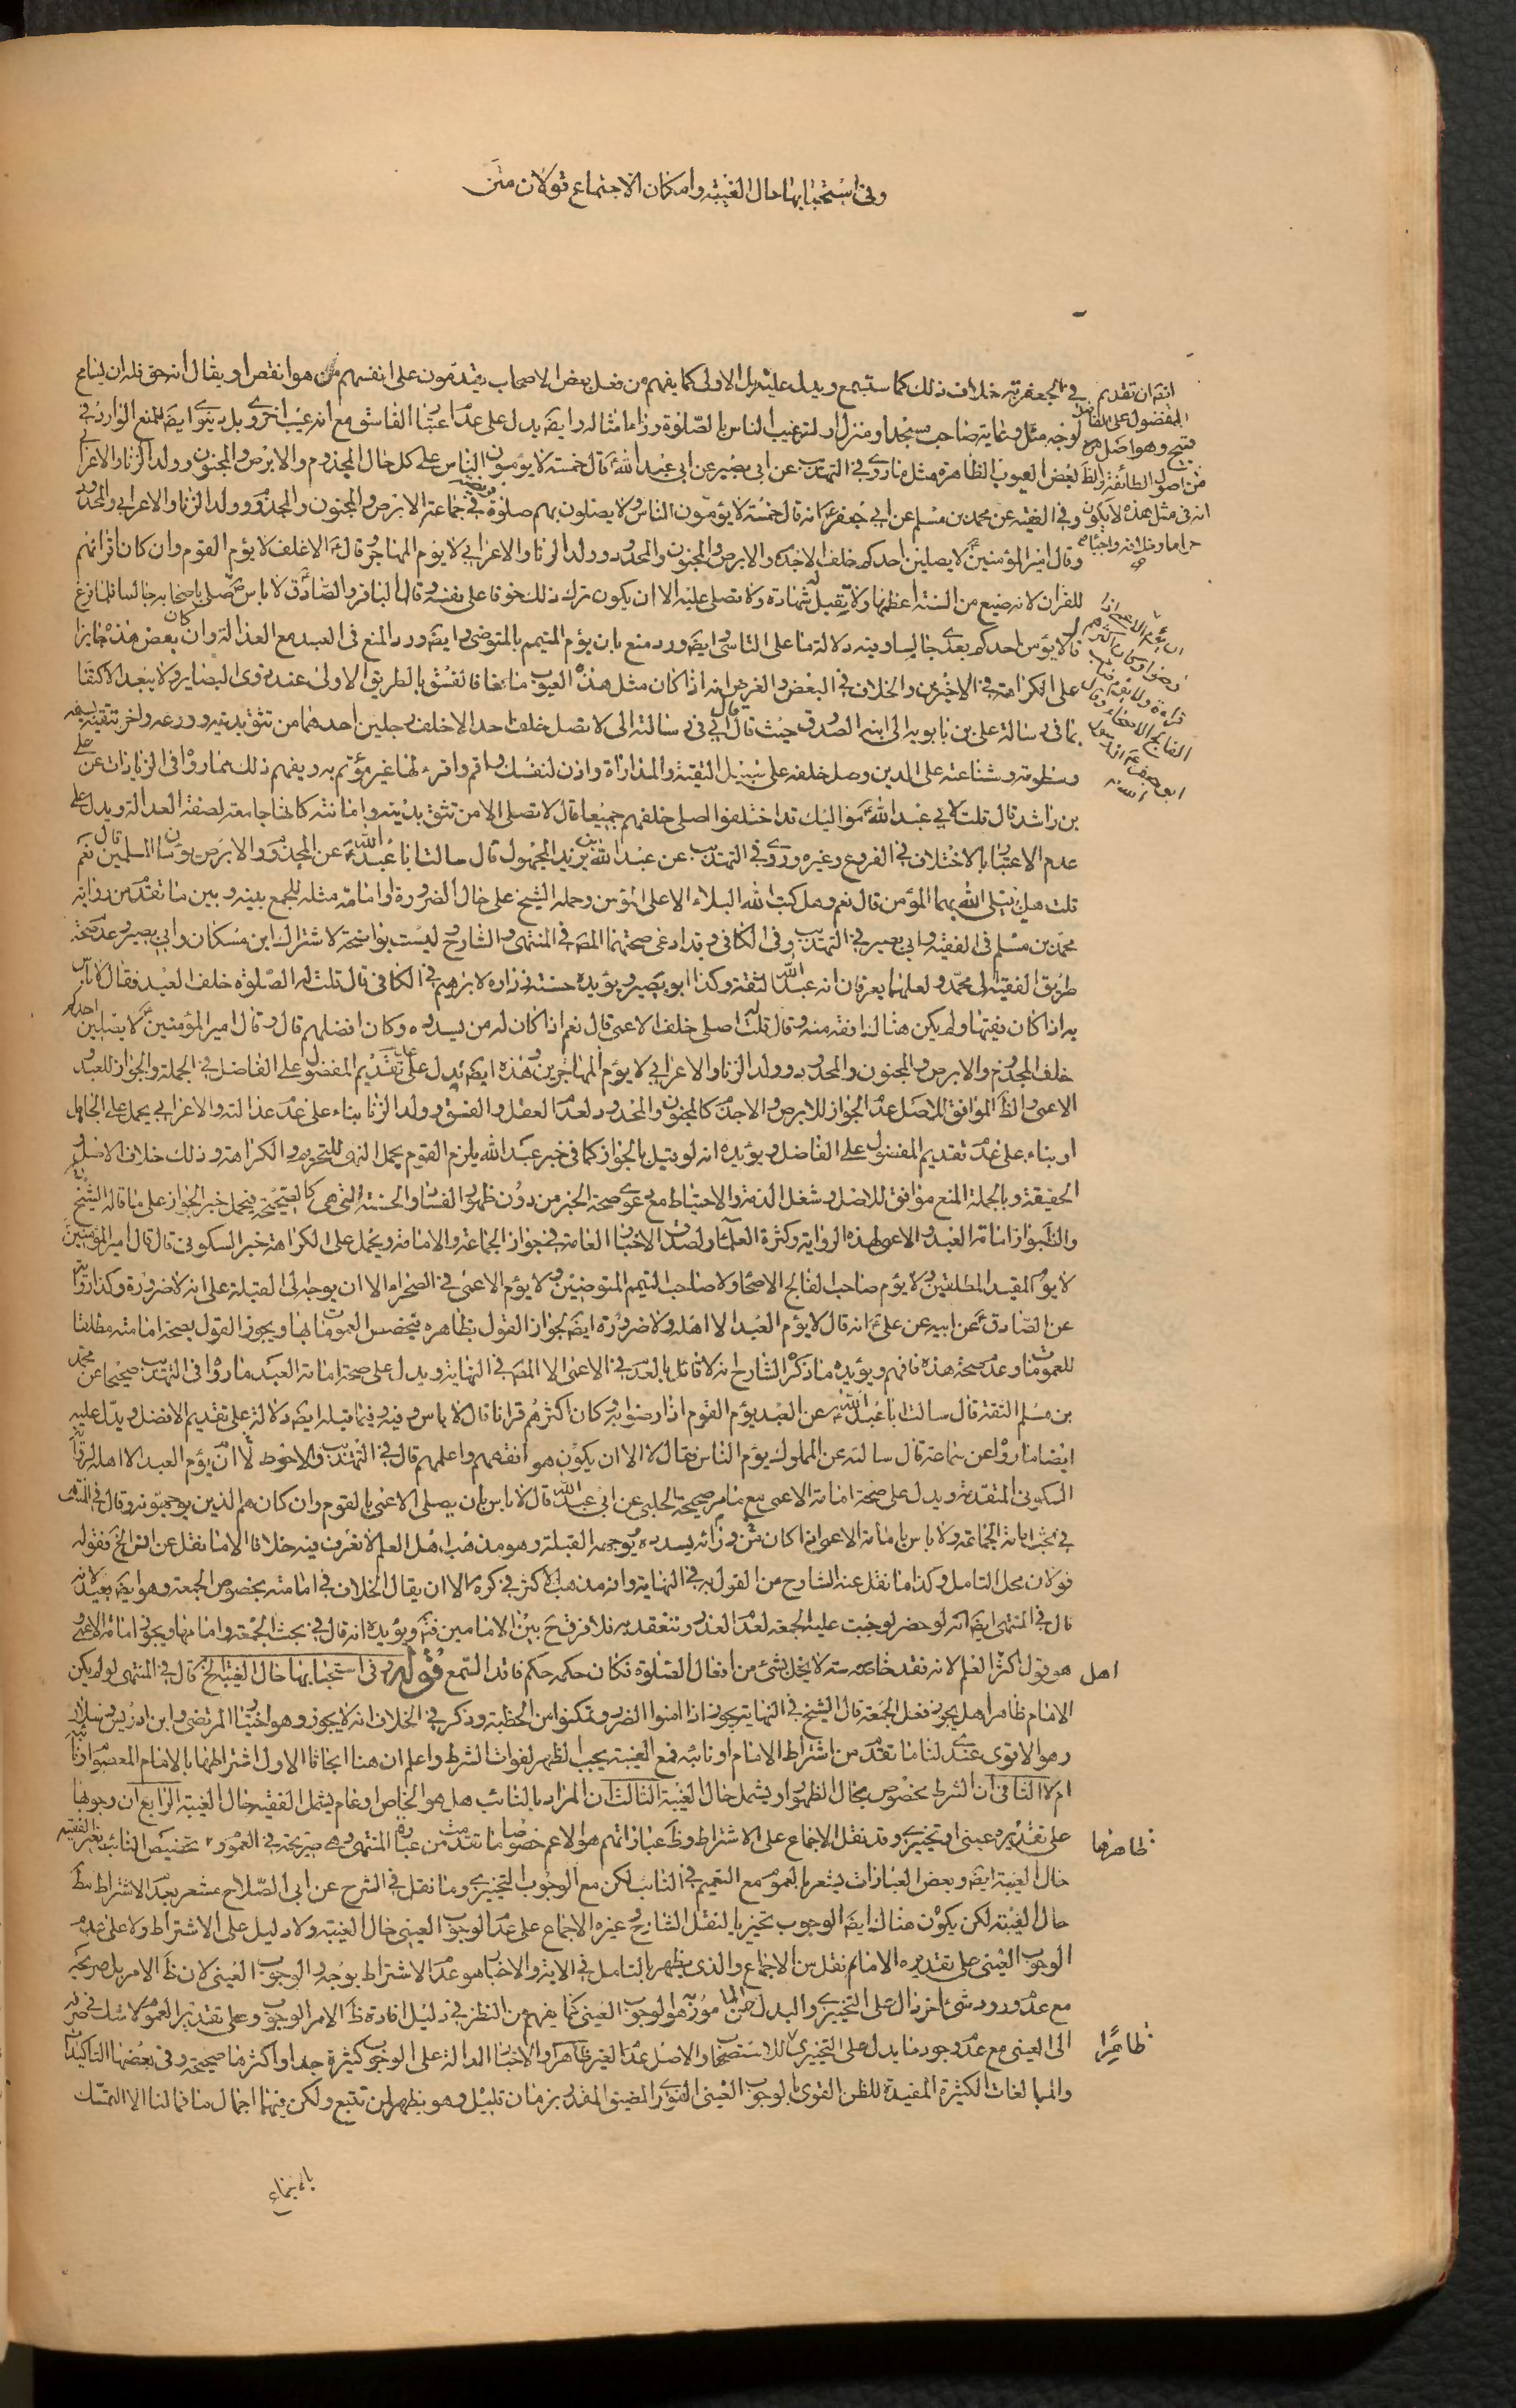 وفى استحبابها حال الغيبة وامكان الاجتماع قولان متن
فى الجعفرية خلاف ذلك كما ستسمع ويدل عليه بل الاولى كما يفهم من فعل بعض الاصحاب يقدمون على انفسهم من هو انقص او يقال انه حق فله ان
لوجه مثل رعاية صاحب مسجد او منزل او لترغيب الناس بالصلوة وراء امثاله وايضا يدل على عدم اعتبار الفاسق مع انه عيب اخروى بل دينوى ايضا المنع الوارد فى
بعض العيوب الظاهرة مثل ما روى فى التهذيب عن ابى بصير عن ابى عبد الله قال خمسة لا يؤمون الناس على كل حال المجذوم والابرص والمجنون وولد الزنا والاعرابى
وفى الفقيه عن محمد بن مسلم عن ابى جعفر انه قال خمسة لا يؤمون الناس ولا يصلون بهم صلوة فريضة فى جماعة الابرص والمجنون والمجذوم وولد الزنا والاعرابى والمحدود
وقال امير المؤمنين لا يصلين احدكم خلف الاجذم والابرص والمجنون والمحدود وولد الزنا والاعرابى لا يؤم المهاجر وقال الاغلف لا يؤم القوم وان كان اقرائهم
للقران لانه ضيع من السنة اعظمها ولا تقبل له شهادة ولا تصلى عليه الا ان يكون ترك ذلك خوفا على نفسه وقال الباقر والصادق لا باس صلى باصحابه جالسا فلما فرغ
قال لا يؤمن احدكم بعدى جالسا وفيه دلالة ما على التاسى وايضا ورد منع بان يؤم المتيمم بالمتوضى وايضا ورد المنع فى العبد مع العدالة وان كان بعض هذه جايزا
على الكراهة فى الاخيرين والخلاف فى البعض والغرض انه اذا كان مثل هذه العيوب مانعا فالفسق بالطريق الاولى عند ذوى البصاير ولا يبعد الاكتفا
بما فى رسالة على بن بابويه الى ابنه الصدوق حيث قال قال ابى فى رسالته الى لا تصل خلف احد الا خلف رجلين احدهما من تثق بدينه وورعه واخر تتقى سيفه
وسطوته وشناعته على الدين وصل خلفه على سبيل التقية والمداراة واذن لنفسك واقم واقرء لها غير مؤتم به ويفهم ذلك مما روى فى الزيادات عن على
بن راشد قال قلت لابى عبد الله مواليك قد اختلفوا اصلى خلفهم جميعا قال لا تصلى الا من تثق بدينه وامانته كانها جامعة لصفة العدالة ويدل على
عدم الاعتبار بالاختلاف فى الفروع وغيره وروى فى التهذيب عن عبد الله بن يزيد المجهول قال سالت ابا عبد الله عن المجذوم والابرص يؤمان المسلمين قال نعم
قلت هل يبتلى الله بهما المؤمن قال نعم وهل كتب الله البلاء الا على المؤمن وحمله الشيخ على حال الضرورة او امامة مثله للجمع بينه وبين ما تقدم من رواية
محمد بن مسلم فى الفقيه وابى بصير فى التهذيب وفى الكافى وقد ادعى صحتهما المص فى المنتهى والشارح ليست بواضحة لاشتراك ابن مسكان وابى بصير وعدم صحة
طريق الفقيه الى محمد ولعلهما يعرفان انه عبد الله الثقة وكذا ابو بصير ويؤيده حسنة زرارة لابراهيم فى الكافى قال قلت له الصلوة خلف العبد فقال لا باس
به اذا كان فقيها ولم يكن هناك افقه منه وقال قلت له اصلى خلف الاعمى قال نعم اذا كان له من يسدده وكان افضلهم قال وقال امير المؤمنين لا يصلين احدكم
خلف المجذوم والابرص والمجنون والمحدود وولد الزنا والاعرابى لا يؤم المهاجرين وهذه ايضا تدل على عدم تقديم المفضول على الفاضل فى الجملة والجواز للعبد
الاعمى والظ الموافق للاصل عدم الجواز للابرص والاجذم كالمجنون والمحدود لعدم العقل والفسق وولد الزنا بناء على عدم عدالته والاعرابى يحمل على الجاهل
او بناء على عدم تقديم المفضول على الفاضل ويؤيده انه لو قيل بالجواز كما فى خبر عبد الله يلزم القوم بحمل النهى للتحريم والكراهة وذلك خلاف الاصل
الحقيقة وبالجملة المنع موافق للاصل وشغل الذمة والاحتياط مع دعوى صحة الخبر من دون ظهور الفساد والحسنة التى هى كالصحيحة فيحمل خبر الجواز على ما قاله الشيخ
والظ جواز امامة العبد والاعمى لهذه الرواية وكثرة العلماء ولصدق الاخبار العامة فى جواز الجماعة والامامة ويحمل على الكراهة خبر السكونى قال قال امير المؤمنين
لا يؤم المقيد المطلقين ولا يؤم صاحب الفالج الاصحاء ولا صاحب التيمم المتوضئين ولا يؤم الاعمى فى الصحراء الا ان يوجه الى القبلة على انه لا ضرورة وكذا رواية
عن الصادق عن ابيه عن على انه قال لا يؤم العبد الا اهله ولا ضرورة ايضا لجواز القول بظاهره بتخصيص العمومات بها ويجوز القول بصحة امامته مطلقا
للعمومات وعدم صحة هذه فافهم ويؤيده ما ذكره الشارح انه لا قائل بالعدم فى الاعمى الا المص فى النهاية ويدل على صحة امامة العبد ما روى فى التهذيب صحيحا عن محمد
بن مسلم الثقة قال سالت ابا عبد الله عن العبد يؤم القوم اذا رضوا به وكان اكثرهم قرانا قال لا باس به وفيه وفيما قبله ايضا دلالة على تقديم الافضل ويدل عليه
ايضا ما روى عن سماعة قال سالته عن المملوك يؤم الناس فقال لا الا ان يكون هو افقههم واعلمهم قال فى التهذيب والاحوط لا ان يؤم العبد الا اهله لرواية
السكونى المتقدمة ويدل على صحة امامة الاعمى مع ما مر صحيحة الحلبى عن ابى عبد الله قال لا باس بان يصلى الاعمى بالقوم وان كان هم الذين يوجهونه وقال فى المنتهى
فى بحث امامة الجماعة ولا باس بامامة الاعمى اذا كان من ورائه يسدده يوجهه القبلة وهو مذهب اهل العلم لا نعرف فيه خلافا الا ما نقل عن انس الخ فقوله
قولان محل التامل وكذا ما نقل عنه الشارح من القول به فى النهاية وانه مذهب الاكثر فى كره الا ان يقال الخلاف فى امامته بخصوص الجمعة وهو ايضا بعيد لانه
قال فى المنتهى ايضا انه لو حضر لوجبت عليه الجمعة لعدم العذر وتنعقد به فلا فرق ح بين الامامين فتم ويؤيده انه قال فى بحث الجمعة وامامها ويجوز امامة الاعمى
هو قول اكثر اهل العلم لانه فقد حاسة لا يخل بشئ من افعال الصلوة فكان حكمه حكم فاقد السمع قوله وفى استحبابها حال الغيبة الخ قال فى المنتهى لو لم يكن
الامام ظاهرا هل يجوز فعل الجمعة قال الشيخ فى النهاية يجوز اذا امنوا الضرر وتمكنوا من الخطبة وذكر فى الخلاف انه لا يجوز وهو اختيار المرتضى وابن ادريس وسلار
وهو الاقوى عندى لنا ما تقدم من اشتراط الامام او نائبه فمع الغيبة يجب الظهر لفوات الشرط واعلم ان هنا ابحاثا الاول اشتراطها بالامام المعصوم او نائبه
ام لا الثانى ان الشرط مخصوص بحال الظهور او يشمل حال الغيبة الثالث ان المراد بالنائب هل هو الخاص او عام يشمل الفقيه حال الغيبة الرابع ان وجوبها
على تقديره عينى او تخييرى وقد نقل الاجماع على الاشتراط وظ عباراتهم هو الاعم خصوصا ما تقدمت من عبارة المنتهى وهى صريحة فى العموم وتخصيص النائب بغير الفقيه
حال الغيبة ايضا وبعض العبارات يشعر بالعموم مع التعميم فى النائب لكن مع الوجوب التخييرى وما نقل فى الشرح عن ابى الصلاح مشعر بعدم الاشتراط مط
حال الغيبة لكن يكون هناك ايضا الوجوب تخييريا لنقل الشارح وغيره الاجماع على عدم الوجوب العينى حال الغيبة ولا دليل على الاشتراط ولا على عدم
الوجوب العينى على تقديره الا ما نقل من الاجماع والذى يظهر بالتامل فى الاية والاخبار هو عدم الاشتراط بوجه والوجوب العينى لان ظ الامر بل صريحه
مع عدم ورود شئ اخر دال على التخيير والبدل عن المامور به هو الوجوب العينى كما يفهم من النظر فى دليل افادة ظ الامر الوجوب وعلى تقدير العموم لا شك فى صرفه
الى العينى مع عدم وجود ما يدل على التخييرى للاستصحاب والاصل عدم الغير ظاهرا والاخبار الدالة على الوجوب كثيرة جدا واكثرها صحيحة وفى بعضها التاكيدات
والمبالغات الكثيرة المفيدة للظن القوى بالوجوب العينى الفورى المضيق المقدر بزمان قليل وهو يظهر لمن تتبع ولكن فيها اجمال ما فما لنا الا التمسك
اهل
ظاهرها
ظاهرا
بالايماء